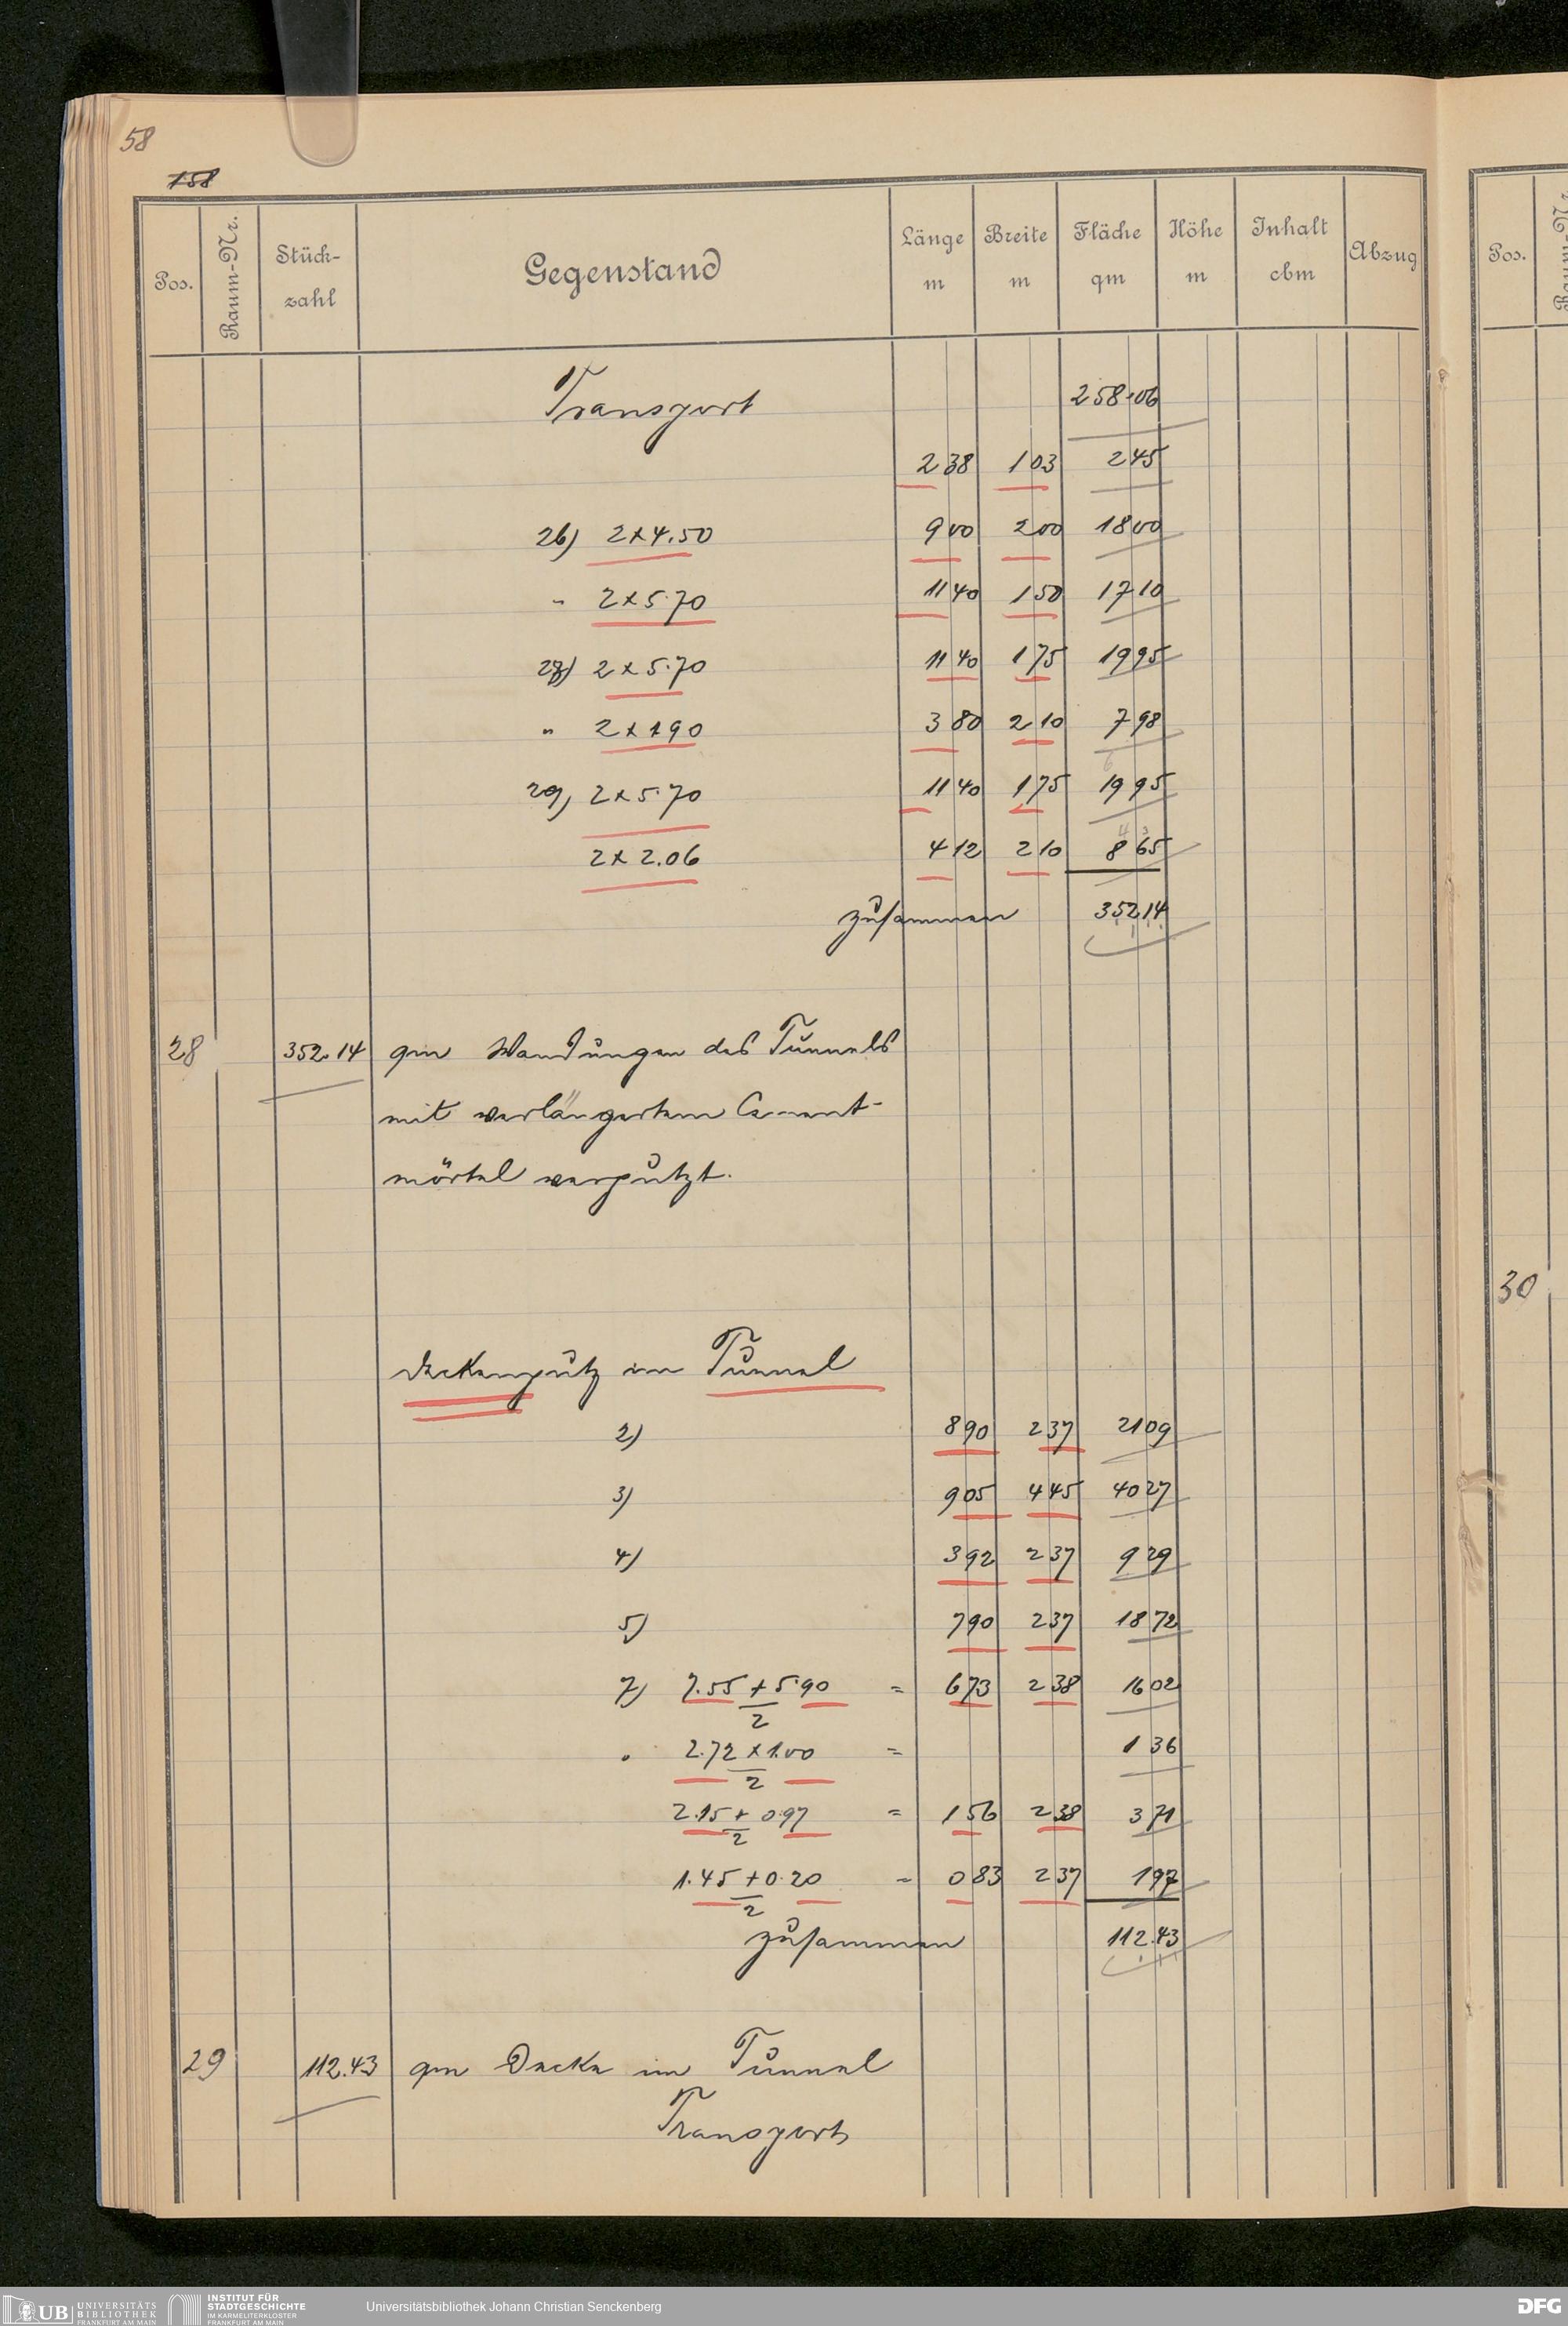 58
158
Pos. Raum-Nr. Stück-zahl Gegenstand Länge m Breite m Fläche qm Höhe m Inhalt cbm Abzug Pos.
Transport 258.06
2 38 1 03 2 45
26) 2x4.50 9 00 2 00 18 00
" 2x5.70 11 40 1 50 17 10
28) 2x5.70 11 40 1 75 19 95
" 2x1 90 3 80 2 10 7 98
29) 2x5.70 11 40 1 75 19 95
2x2.06 4 12 2 10 8 65
zusammen 352 14
28 352.14 qm Wandungen des Tunnels
mit verlängertem Cement-
mörtel verputzt.
Deckenputz im Tunnel
2) 8 90 2 37 21 09
3) 9 05 4 45 40 27
4) 3 92 2 37 9 29
5) 7 90 2 37 18 72
7) 7.55 + 5.90 / 2 = 6 73 2 38 16 02
" 2.72 x 1.00 / 2 = 1 36
2.15 + 0.97 / 2 = 1 56 2 38 3 71
1.45 + 0.20 / 2 = 0 83 2 37 1 97
zusammen 112.43
29 112.43 qm Decke im Tunnel
Transport
30
UB UNIVERSITÄTS BIBLIOTHEK FRANKFURT AM MAIN
INSTITUT FÜR STADTGESCHICHTE IM KARMELITERKLOSTER FRANKFURT AM MAIN
Universitätsbibliothek Johann Christian Senckenberg
DFG